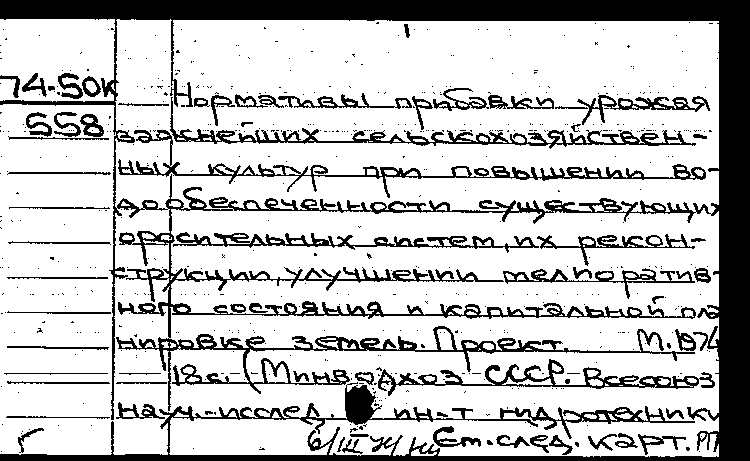 74-50К
558
Нормативы прибавки урожая
важнейших сельскохозяйствен-
ных культур при повышении во-
дообеспеченности существующих
оросительных систем, их рекон-
струкции, улучшении мелиоратив-
ного состояния и капитальной пла
нировке земель. Проект. М., 1974
18 с. (Минводхоз СССР. Всесоюз
науч.-исслед. ин-т гидротехники
6/III 74 См. след. карт. РП